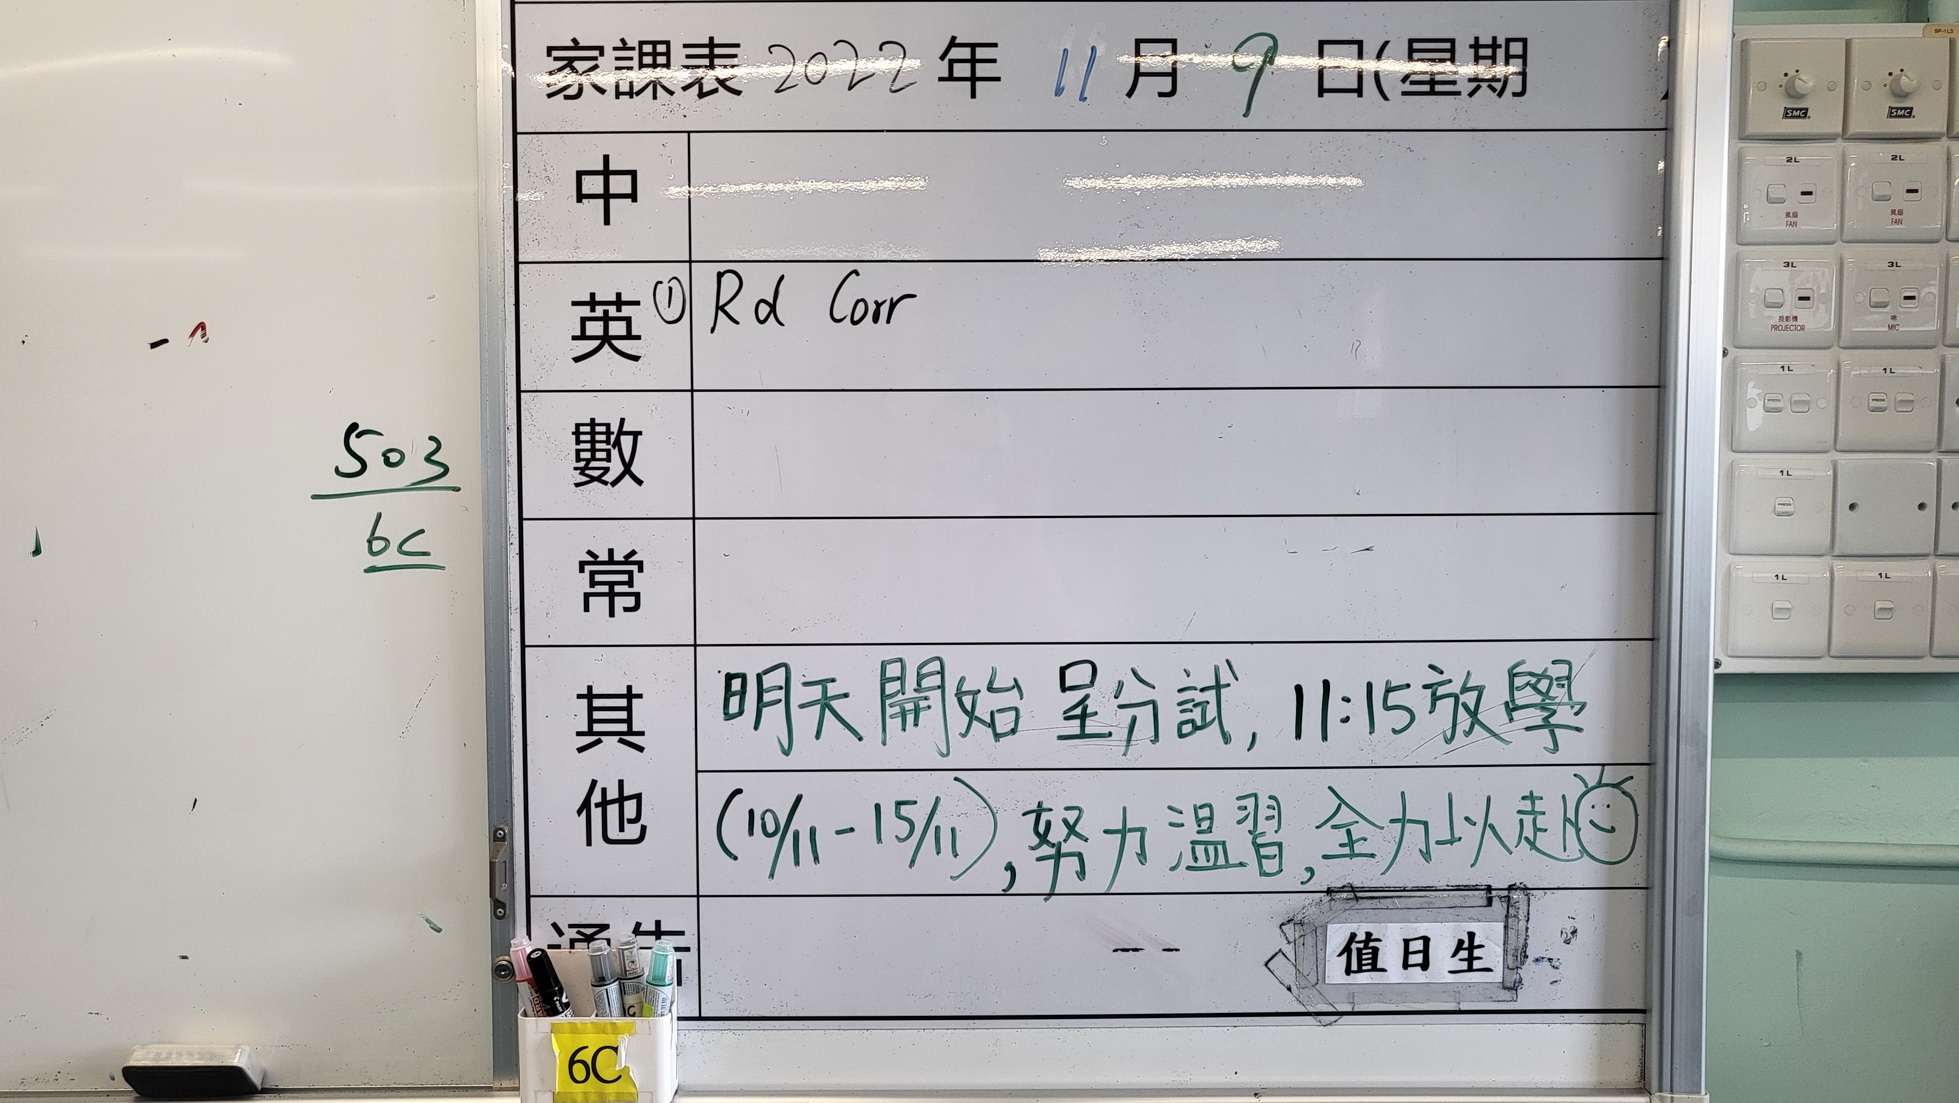 家課表 2022 年 11 月 9 日(星期 )
中
英 ① Rd Corr
數
常
其他
明天開始呈分試, 11:15放學
(10/11-15/11), 努力溫習, 全力以赴
通告
值日生
503
6C
6C
SP-1L3
SMC
SMC
2L
風扇
FAN
2L
風扇
FAN
3L
投影機
PROJECTOR
3L
咪
MIC
1L
PRESS
1L
PRESS
1L
PRESS
1L
1L